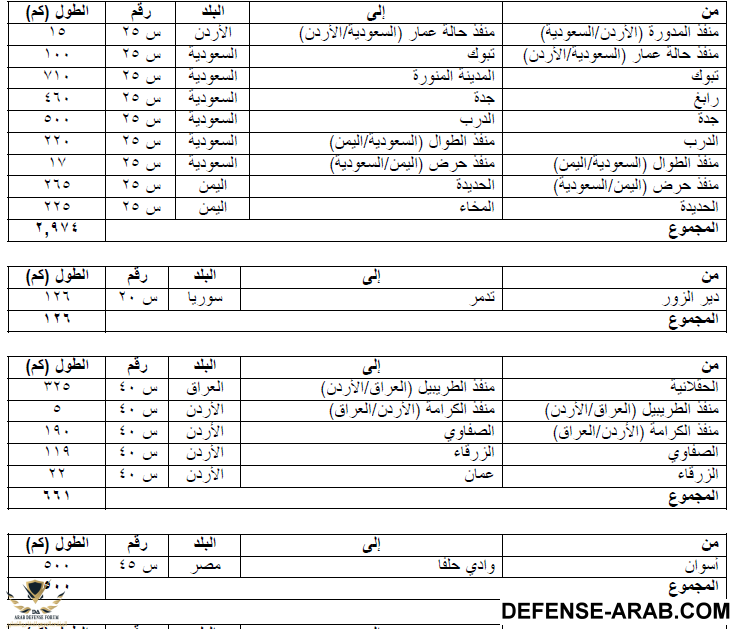 من إلى البلد رقم الطول (كم)
منفذ المدورة (الأردن/السعودية) منفذ حالة عمار (السعودية/الأردن) الأردن س ٢٥ ١٥
منفذ حالة عمار (السعودية/الأردن) تبوك السعودية س ٢٥ ١٠٠
تبوك المدينة المنورة السعودية س ٢٥ ٧١٠
رابغ جدة السعودية س ٢٥ ٤٦٠
جدة الدرب السعودية س ٢٥ ٥٠٠
الدرب منفذ الطوال (السعودية/اليمن) السعودية س ٢٥ ٢٢٠
منفذ الطوال (السعودية/اليمن) منفذ حرض (اليمن/السعودية) السعودية س ٢٥ ١٧
منفذ حرض (اليمن/السعودية) الحديدة اليمن س ٢٥ ٢٦٥
الحديدة المخاء اليمن س ٢٥ ٢٢٥
المجموع ٢,٩٧٤
من إلى البلد رقم الطول (كم)
دير الزور تدمر سوريا س ٢٠ ١٢٦
المجموع ١٢٦
من إلى البلد رقم الطول (كم)
الحقلانية منفذ الطريبيل (العراق/الأردن) العراق س ٤٠ ٣٢٥
منفذ الطريبيل (العراق/الأردن) منفذ الكرامة (الأردن/العراق) الأردن س ٤٠ ٥
منفذ الكرامة (الأردن/العراق) الصفاوي الأردن س ٤٠ ١٩٠
الصفاوي الزرقاء الأردن س ٤٠ ١١٩
الزرقاء عمان الأردن س ٤٠ ٢٢
المجموع ٦٦١
من إلى البلد رقم الطول (كم)
أسوان وادي حلفا مصر س ٤٥ ٥٠٠
المجموع ٥٠٠
ARAB DEFENSE FORUM
DEFENSE-ARAB.COM